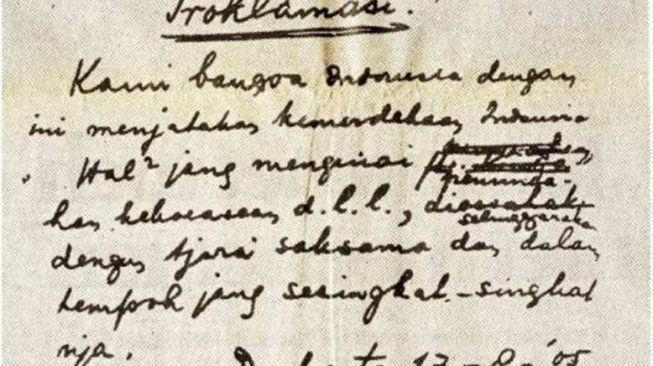 Proklamasi.
Kami bangsa Indonesia dengan
ini menjatakan kemerdekaan Indonesia
Hal² jang mengenai
pemindahan kekoeasaan d.l.l.,
diselenggarakan
dengan tjara saksama dan dalam
tempoh jang sesingkat-singkat
nja.
Djakarta 17 - 8 - '05